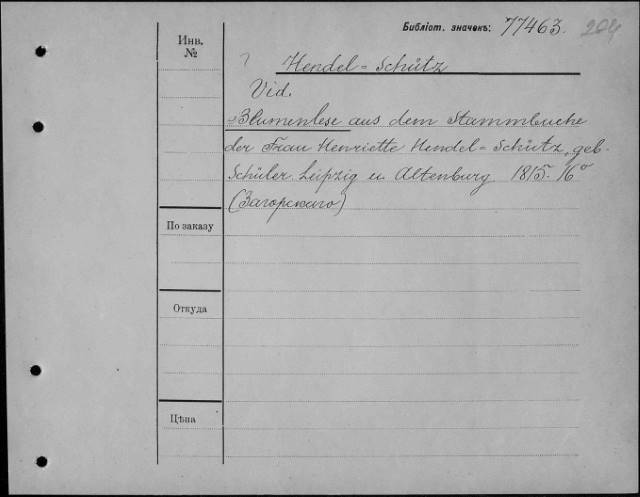 Библіот. значекъ: 77463. 204
Инв.
№
? Hendel=Schütz
Vid.
Blumenlese aus dem Stammbuche
der Frau Henriette Hendel=Schütz, geb.
Schüler. Leipzig u. Altenburg 1815. 16°
(Загорскаго)
По заказу
Откуда
Цѣна